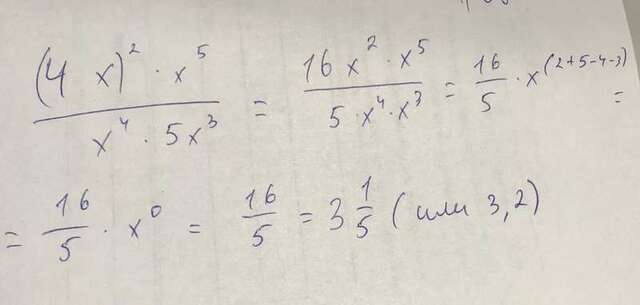 (4 x)² · x⁵ / x⁴ · 5x³ = 16x² · x⁵ / 5 · x⁴ · x³ = 16/5 · x^(2+5-4-3) =
= 16/5 · x⁰ = 16/5 = 3 1/5 (или 3,2)